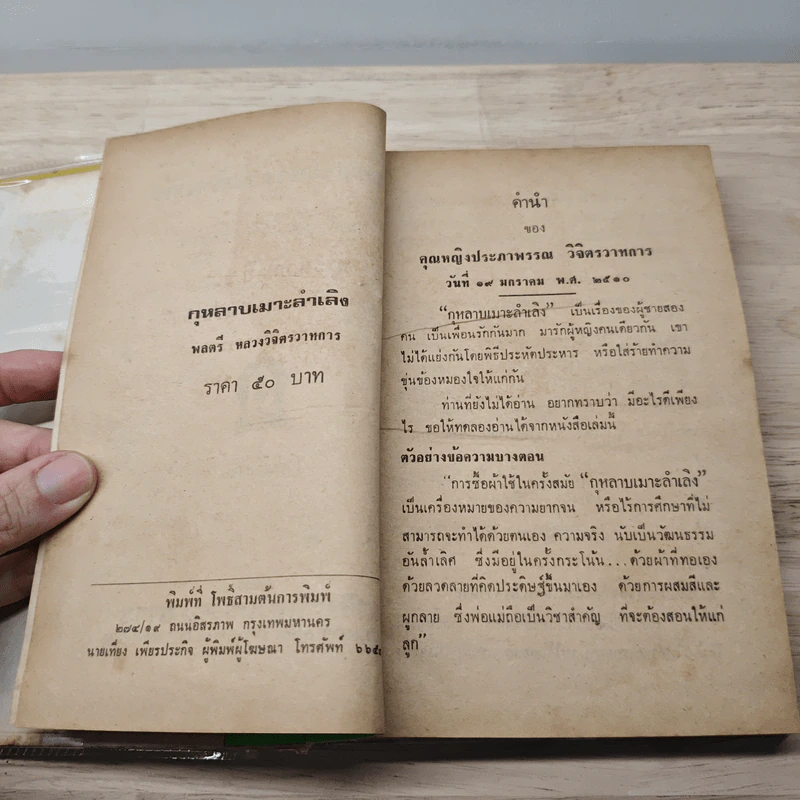 กุหลาบเมาะลำเลิง
พลตรี หลวงวิจิตรวาทการ
ราคา ๕๐ บาท
พิมพ์ที่ โพธิ์สามต้นการพิมพ์
๒๗๔/๑๙ ถนนอิสรภาพ กรุงเทพมหานคร
นายเที่ยง เพียรประกิจ ผู้พิมพ์ผู้โฆษณา โทรศัพท์
คำนำ
ของ
คุณหญิงประภาพรรณ วิจิตรวาทการ
วันที่ ๑๙ มกราคม พ.ศ. ๒๕๑๐
“กุหลาบเมาะลำเลิง” เป็นเรื่องของผู้ชายสอง
คน เป็นเพื่อนรักกันมาก มารักผู้หญิงคนเดียวกัน เขา
ไม่ได้แย่งกันโดยพิธีประหัตประหาร หรือใส่ร้ายทำความ
ขุ่นข้องหมองใจให้แก่กัน
ท่านที่ยังไม่ได้อ่าน อยากทราบว่า มีอะไรดีเพียง
ไร ขอให้ทดลองอ่านได้จากหนังสือเล่มนี้
ตัวอย่างข้อความบางตอน
“การซื้อผ้าใช้ในครั้งสมัย “กุหลาบเมาะลำเลิง”
เป็นเครื่องหมายของความยากจน หรือไร้การศึกษาที่ไม่
สามารถจะทำได้ด้วยตนเอง ความจริง นับเป็นวัฒนธรรม
อันล้ำเลิศ ซึ่งมีอยู่ในครั้งกระโน้น...ด้วยผ้าที่ทอเอง
ด้วยลวดลายที่คิดประดิษฐ์ขึ้นมาเอง ด้วยการผสมสีและ
ผูกลาย ซึ่งพ่อแม่ถือเป็นวิชาสำคัญ ที่จะต้องสอนให้แก่
ลูก”